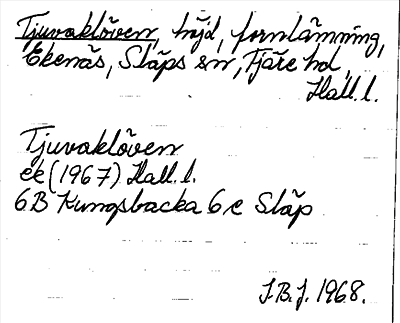 Tjuvaklöven, höjd, fornlämning,
Ekenäs, Släps sn, Fjäre hd,
Hall. l.
Tjuvaklöven
ek (1967) Hall. l.
6B Kungsbacka 6 e Släp
J.B.J. 1968.